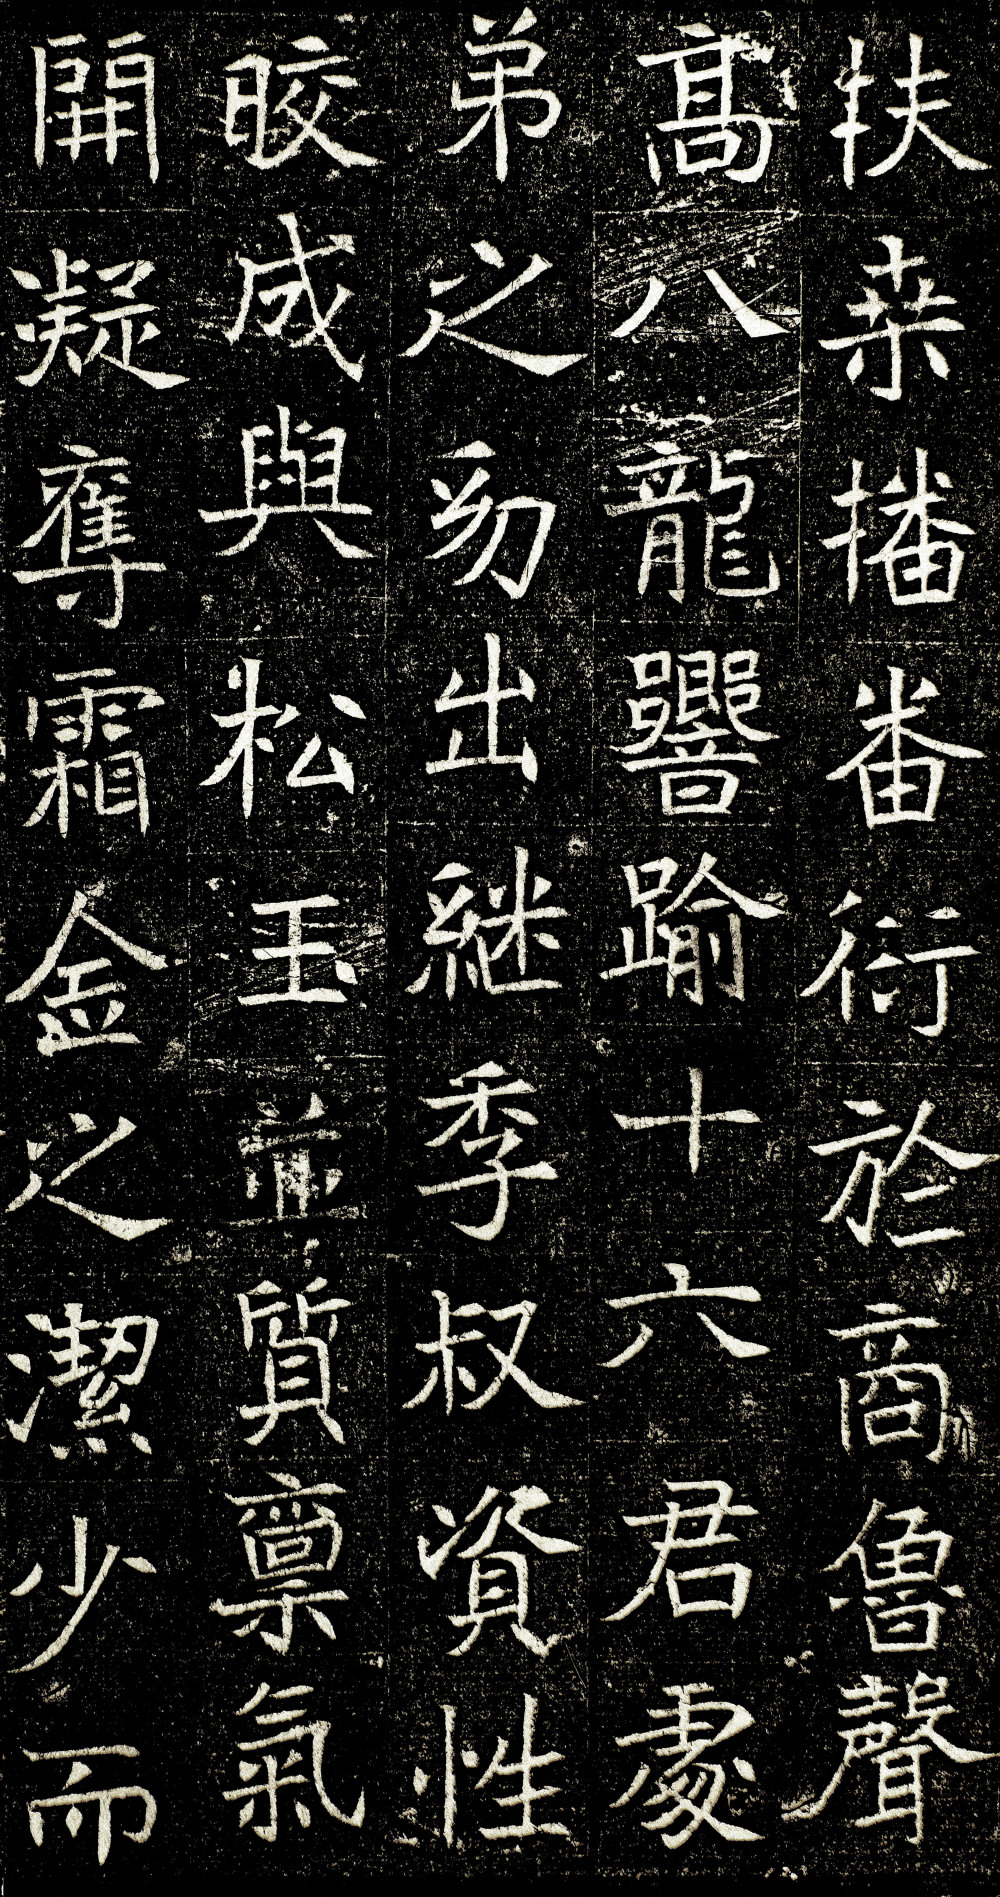 扶桒播番衍於商魯聲
髙八龍響踰十六君處
弟之㓜出継季叔資性
晈成與松玉並質禀氣
開凝奪霜金之潔少而